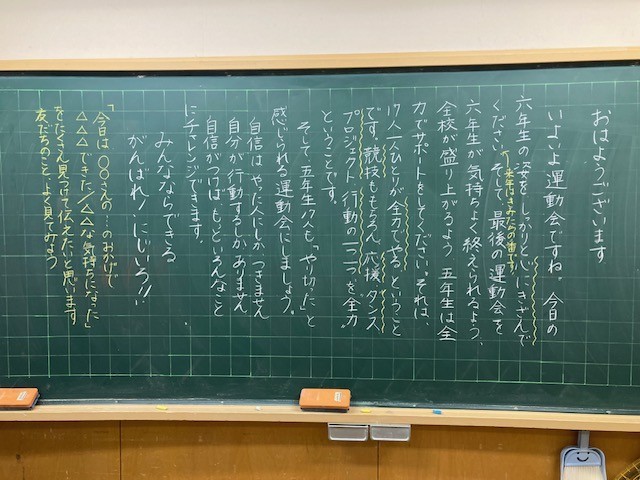 おはようございます
いよいよ運動会ですね。今日の
六年生の姿をしっかりと心にきざんで
ください。そして、最後の運動会を
←来年はきみたちの番です!
六年生が気持ちよく終えられるよう、
全校が盛り上がるよう、五年生は全
力でサポートをしてください。それは、
17人一人ひとりが全力でやるということ
です。競技ももちろん、応援、ダンス
プロジェクト、行動の一つ一つを全力。
ということです。
そして、五年生17人も「やり切った」と
感じられる運動会にしましょう。
自信はやった人にしかつきません
自分が行動するしかありません
自信がつけばもっといろんなこと
にチャレンジできます。
みんなならできる
がんばれ!にじいろ!!
「今日は〇〇さんの…のおかげで
△△△できた/△△な気持ちになった」
をたくさん見つけて伝えたいと思います
友だちのこと、よく見てみよう